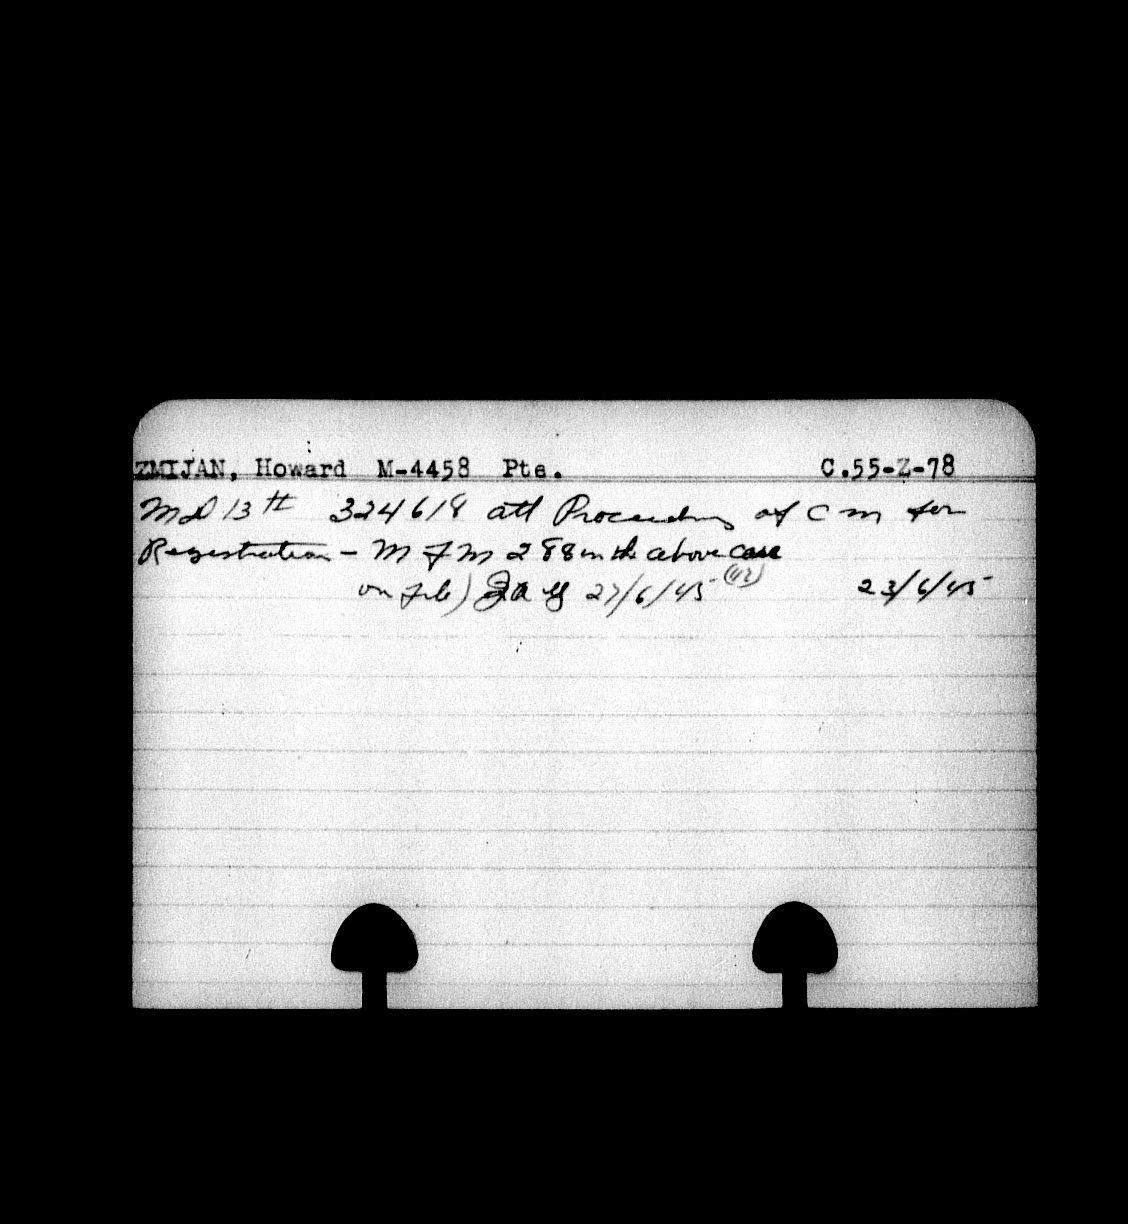 ZMIJAN, Howard M-4458 Pte. C.55-Z-78
MD 13th 324618 att Proceedings of C M for
Registration - M F M 288 in the above case
on file) 27/6/45 (42) 23/6/45